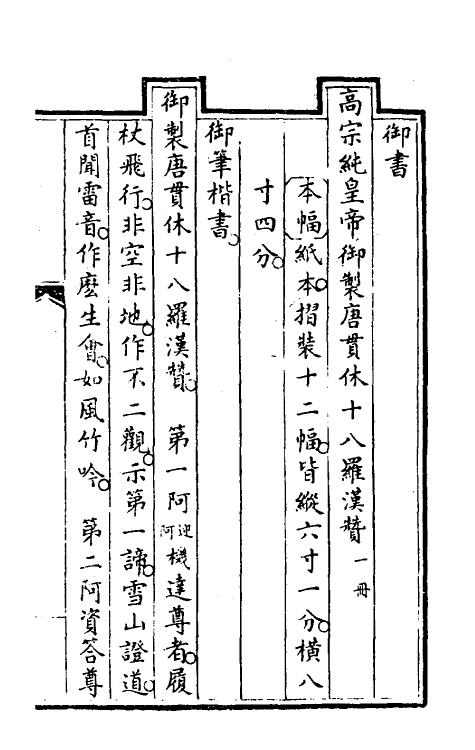 御書
高宗純皇帝御製唐貫休十八羅漢贊一冊
本幅紙本摺裝十二幅皆縱六寸一分橫八
寸四分
御筆楷書
御製唐貫休十八羅漢贊　第一阿迎阿機達尊者履
杖飛行非空非地作不二觀示第一諦雪山證道
首聞雷音作麼生會如風竹吟　第二阿資答尊